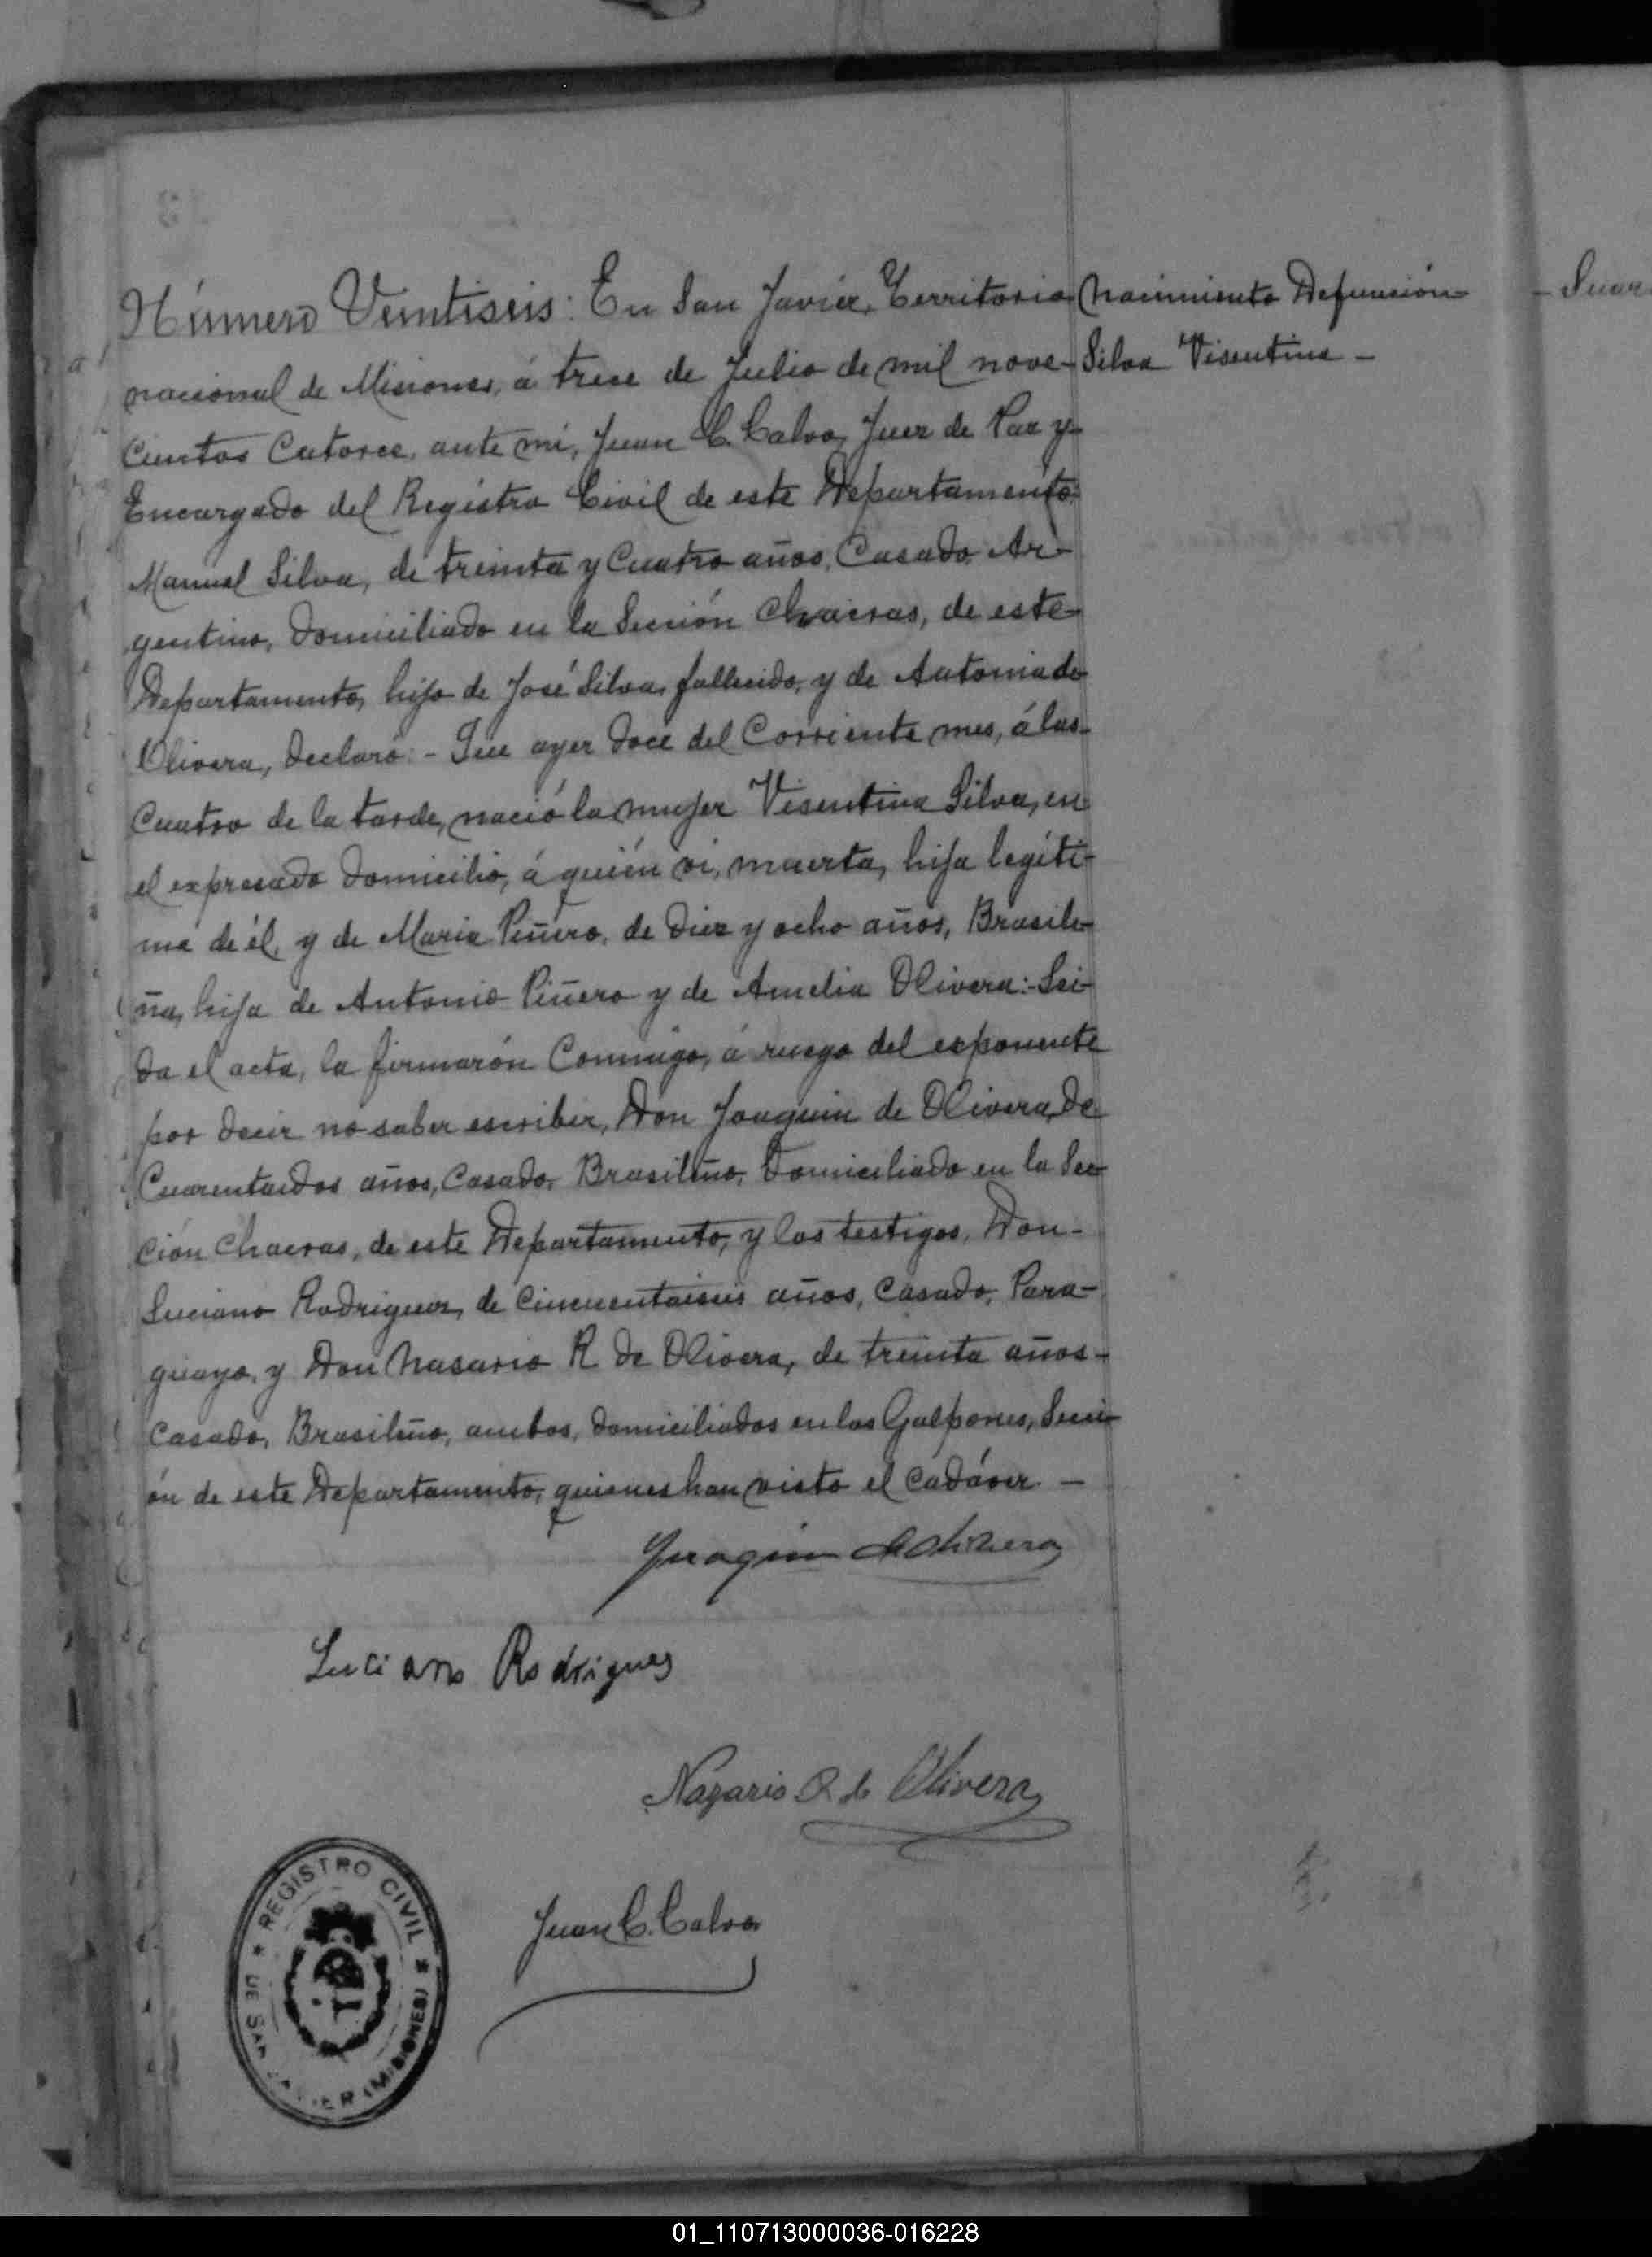 Número Veintiseis: En San Javier, Territorio
nacional de Misiones, á trece de Julio de mil nove-
cientos Catorce, ante mí, Juan C. Calvo, Juez de Paz y
Encargado del Registro Civil de este Departamento:
Manuel Silva, de treinta y Cuatro años, Casado, Ar-
gentino, domiciliado en la Sección Chacras, de este
Departamento, hijo de José Silva, fallecido, y de Antonia de
Olivera, declaró:- Que ayer doce del Corriente mes, á las
Cuatro de la tarde, nació la mujer Visentina Silva, en
el expresado domicilio, á quién vi, muerta, hija legíti-
ma de él, y de Maria Piñero, de diez y ocho años, Brasile-
ña, hija de Antonio Piñero y de Amelia Olivera:- Lei-
da el acta, la firmarón Conmigo, á ruego del exponente
por decir no saber escribir, Don Joaquin de Olivera, de
Cuarentaidos años, Casado, Brasileño, domiciliado en la Sec-
ción Chacras, de este Departamento, y los testigos, Don-
Luciano Rodriguez, de Cincuentaiseis años, Casado, Para-
guayo, y Don Nasario R de Olivera, de treinta años-
Casado, Brasileño, ambos, domiciliados en los Galpones, Secci-
ón de este Departamento, quienes han visto el Cadáver. -
Nacimiento Defunción
Silva Visentina -
Joaquim de Olivera
Luciano Rodrigues
Nazario R de Olivera
Juan C. Calvo
REGISTRO CIVIL
DE SAN JAVIER (MISIONES)
01_110713000036-016228